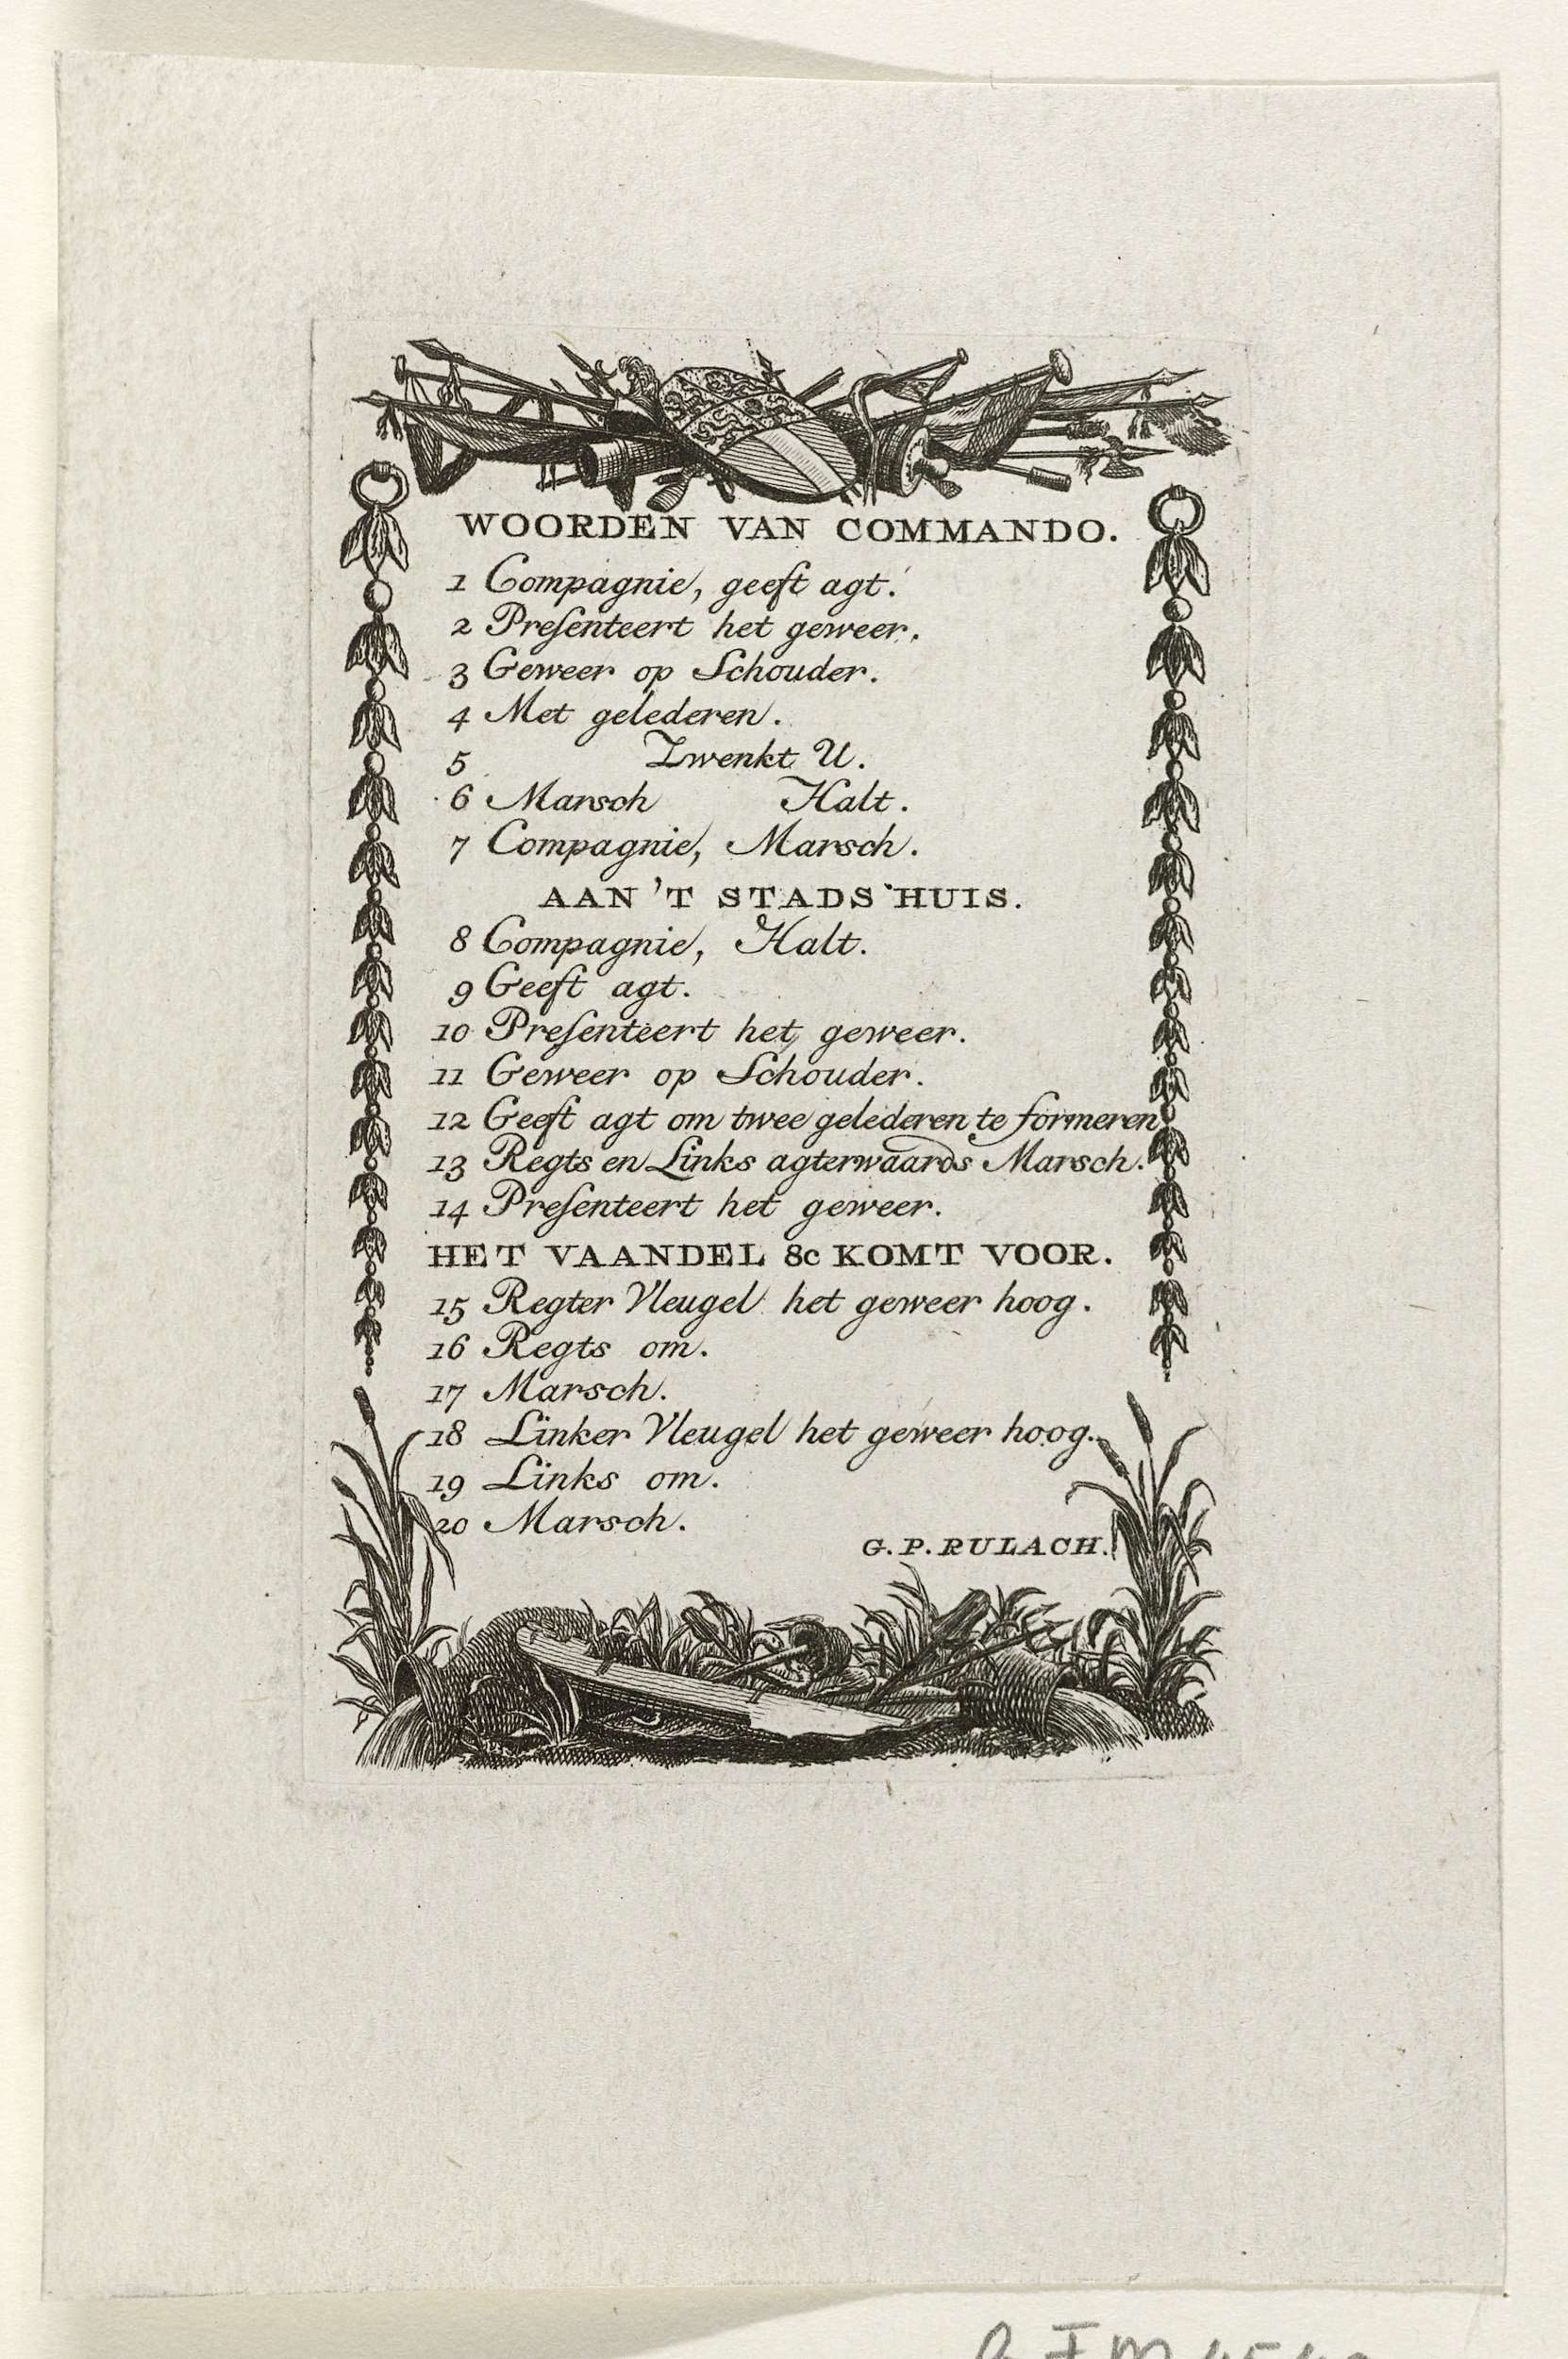 WOORDEN VAN COMMANDO.
1 Compagnie, geeft agt.
2 Preſenteert het geweer.
3 Geweer op Schouder.
4 Met gelederen.
5 Zwenkt U.
6 Marsch Halt.
7 Compagnie, Marsch.
AAN 'T STADS HUIS.
8 Compagnie, Halt.
9 Geeft agt.
10 Preſenteert het geweer.
11 Geweer op Schouder.
12 Geeft agt om twee gelederen te formeren
13 Regts en Links agterwaards Marsch.
14 Preſenteert het geweer.
HET VAANDEL &c KOMT VOOR.
15 Regter Vleugel het geweer hoog.
16 Regts om.
17 Marsch.
18 Linker Vleugel het geweer hoog.
19 Links om.
20 Marsch.
G. P. RULACH.